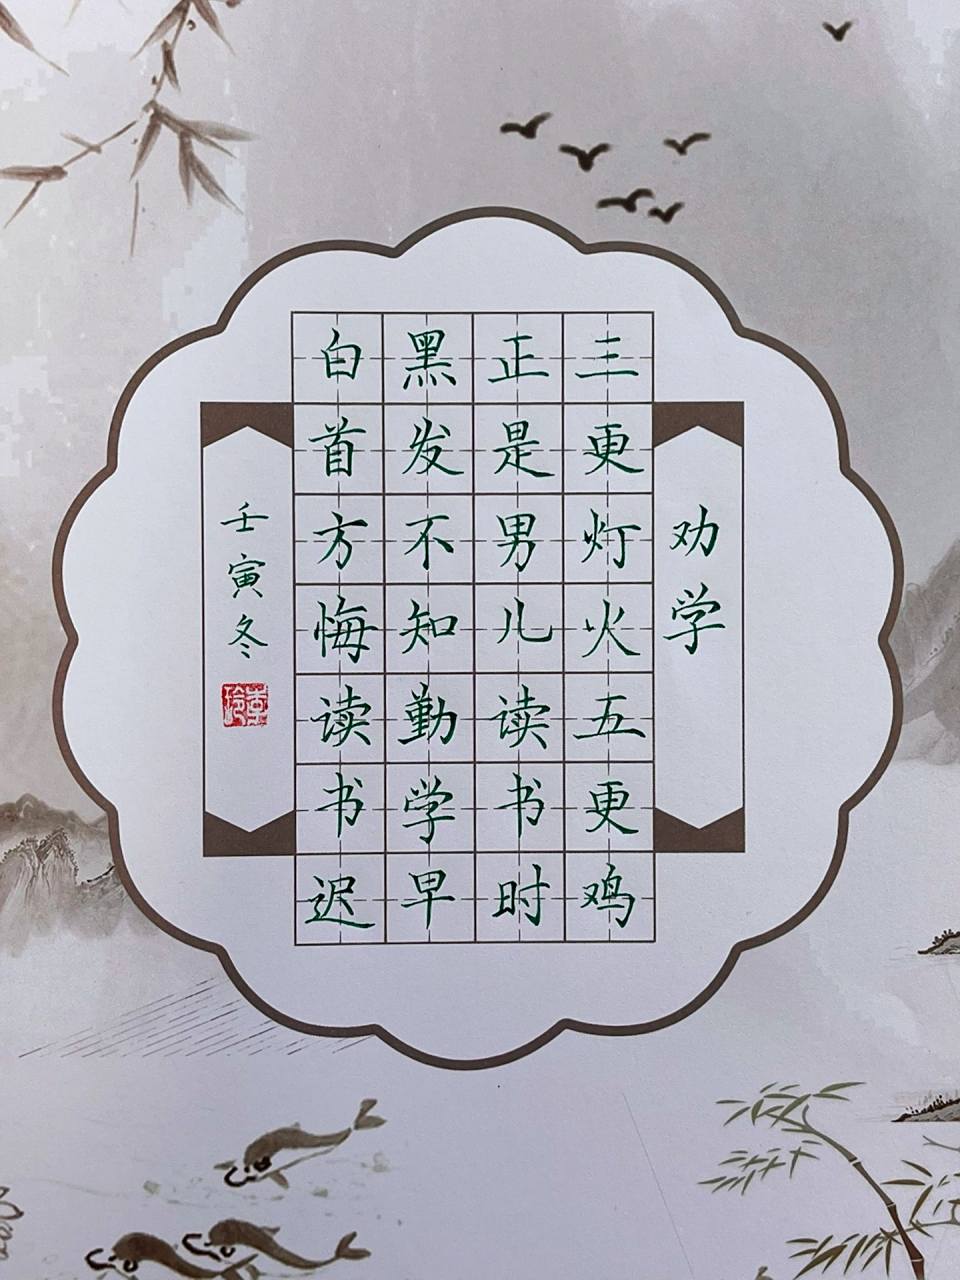 劝学
三更灯火五更鸡
正是男儿读书时
黑发不知勤学早
白首方悔读书迟
壬寅冬